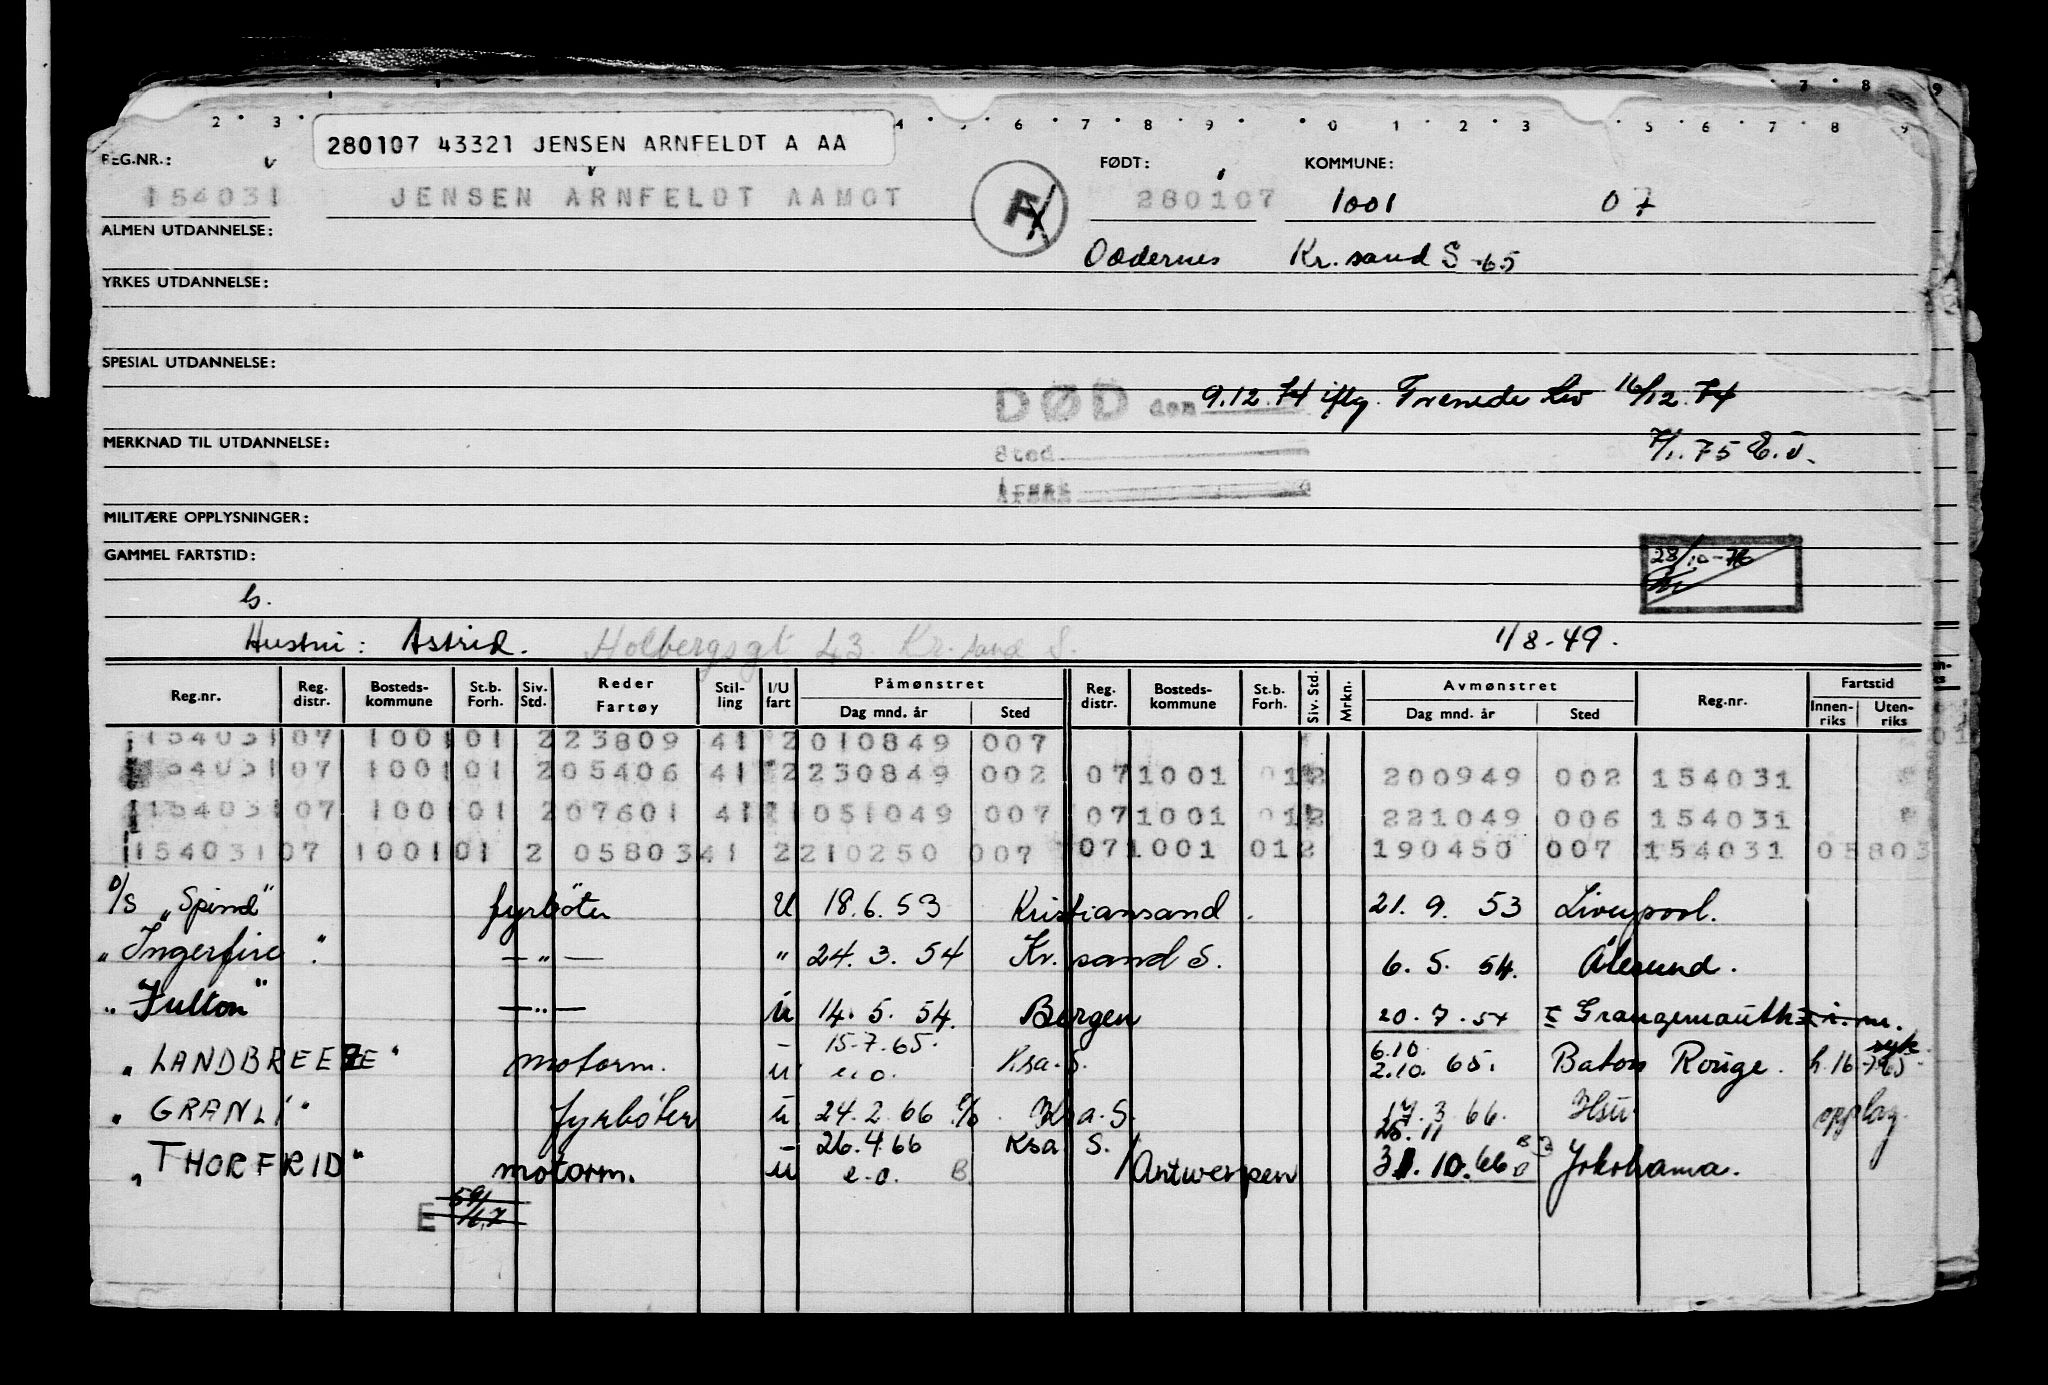 7 · 8 · 9
2 · 3 · 4 · 5 · 6 · 7 · 8 · 9 · 0 1 · 2 · 3 5 · 6 · 7 · 8 9
280107 43321 JENSEN ARNFELDT A AA
REG.NR.: FØDT: KOMMUNE:
154031 JENSEN ARNFELDT AAMOT F 280107 1001 07
ALMEN UTDANNELSE:
Oddernes Kr.sand S -65
YRKES UTDANNELSE:
SPESIAL UTDANNELSE:
DØD den 9.12.74 iflg. Trenede lev 16/12.74
MERKNAD TIL UTDANNELSE:
Sted 7/1.75 E.J.
MILITÆRE OPPLYSNINGER:
GAMMEL FARTSTID:
28/10-76
G.
Hustru: Astrid. Holbergsgt 43 Kr.sand S. 1/8-49.
Reg.nr. Reg. distr. Bosteds- kommune St.b. Forh. Siv. Std. Reder Fartøy Stil- ling I/U fart Påmønstret Dag mnd. år Sted Reg. distr. Bosteds- kommune St.b. Forh. Siv. Std. Mrkn. Avmønstret Dag mnd. år Sted Reg.nr. Fartstid Innen- riks Uten- riks
154031 07 1001 01 2 23809 41 2 010849 007
154031 07 1001 01 2 05406 41 2 230849 002 07 1001 01 2 200949 002 154031
154031 07 1001 01 2 07601 41 1 051049 007 07 1001 01 2 221049 006 154031
154031 07 1001 01 2 05803 41 2 210250 007 07 1001 01 2 190450 007 154031 05803
D/S „Spind" fyrbøter U 18.6.53 Kristiansand. 21.9.53 Liverpool.
„Ingerfire" — " — " 24.3.54 Kr.sand S. 6.5.54. Ålesund.
„Fulton" — " — u 14.5.54. Bergen 20.7.54 Grangemouth
„LANDBREEZE" motorm. u 15.7.65. e.o. Ksa. S. 6.10 2.10.65. Baton Rouge. h.16-7-65 syk
„GRANLI" fyrbøter u 24.2.66 Ksa. S. 17.3.66. Hsu opplag.
„THORFRID" motorm. u 26.4.66 e.o. B Ksa S./Antwerpen 25.11 31.10.66 Yokohama.
E 59/ 16.7